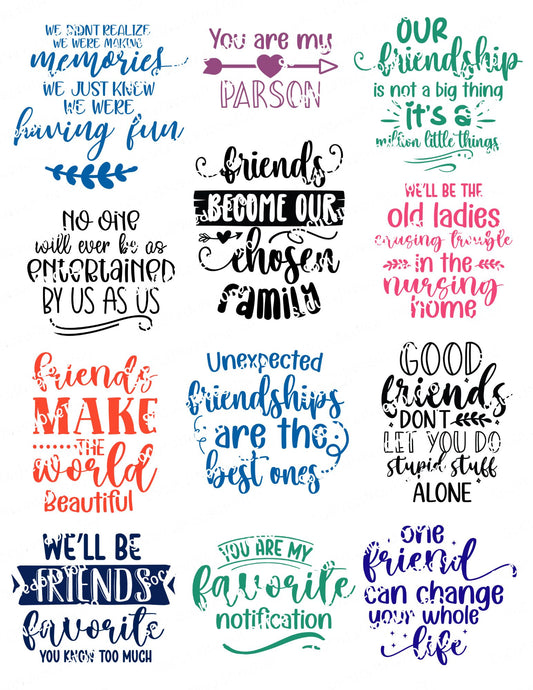 WE DIDNT REALIZE
WE WERE MAKING
memories
WE JUST KNEW
WE WERE
having fun
You are my
PARSON
OUR
friendship
is not a big thing
it's a
million little things
friends
BECOME OUR
chosen
FAMILY
NO ONE
will ever be as
ENTERTAINED
BY US AS US
WE'LL BE THE
old ladies
causing trouble
in the
nursing
home
friends
MAKE
THE
world
Beautiful
Unexpected
friendships
are the
best ones
GOOD
friends
DON'T
LET YOU DO
stupid stuff
ALONE
WE'LL BE
FRIENDS
favorite
YOU KNOW TOO MUCH
YOU ARE MY
favorite
notification
one
friend
can change
your whole
life